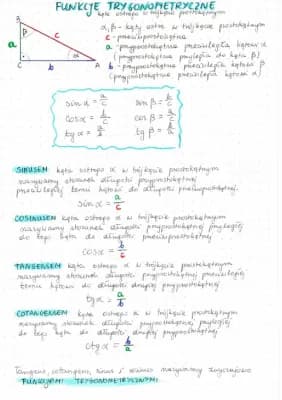 FUNKCJE TRYGONOMETRYCZNE
kąta ostrego w trójkącie prostokątnym
B
α, β - kąty ostre w trójkącie prostokątnym
c - przeciwprostokątna
a - przyprostokątna przeciwległa kątowi α
(przyprostokątna przyległa do kąta β)
b - przyprostokątna przeciwległa kątowi β
(przyprostokątna przyległa kątowi α)
β
c
a
α
C
b
A
sin α = a/c
sin β = b/c
cos α = b/c
cos β = a/c
tg α = a/b
tg β = b/a
SINUSEM kąta ostrego α w trójkącie prostokątnym
nazywamy stosunek długości przyprostokątnej
przeciwległej temu kątowi do długości przeciwprostokątnej.
sin α = a/c
COSINUSEM kąta ostrego α w trójkącie prostokątnym
nazywamy stosunek długości przyprostokątnej przyległej
do tego kąta do długości przeciwprostokątnej
cos α = b/c
TANGENSEM kąta ostrego α w trójkącie prostokątnym
nazywamy stosunek długości przyprostokątnej przeciwległej
temu kątowi do długości drugiej przyprostokątnej
tg α = a/b
COTANGENSEM kąta ostrego α w trójkącie prostokątnym
nazywamy stosunek długości przyprostokątnej przyległej
do tego kąta do długości drugiej przyprostokątnej
ctg α = b/a
Tangens, cotangens, sinus i cosinus nazywamy
FUNKCJAMI TRYGONOMETRYCZNYMI